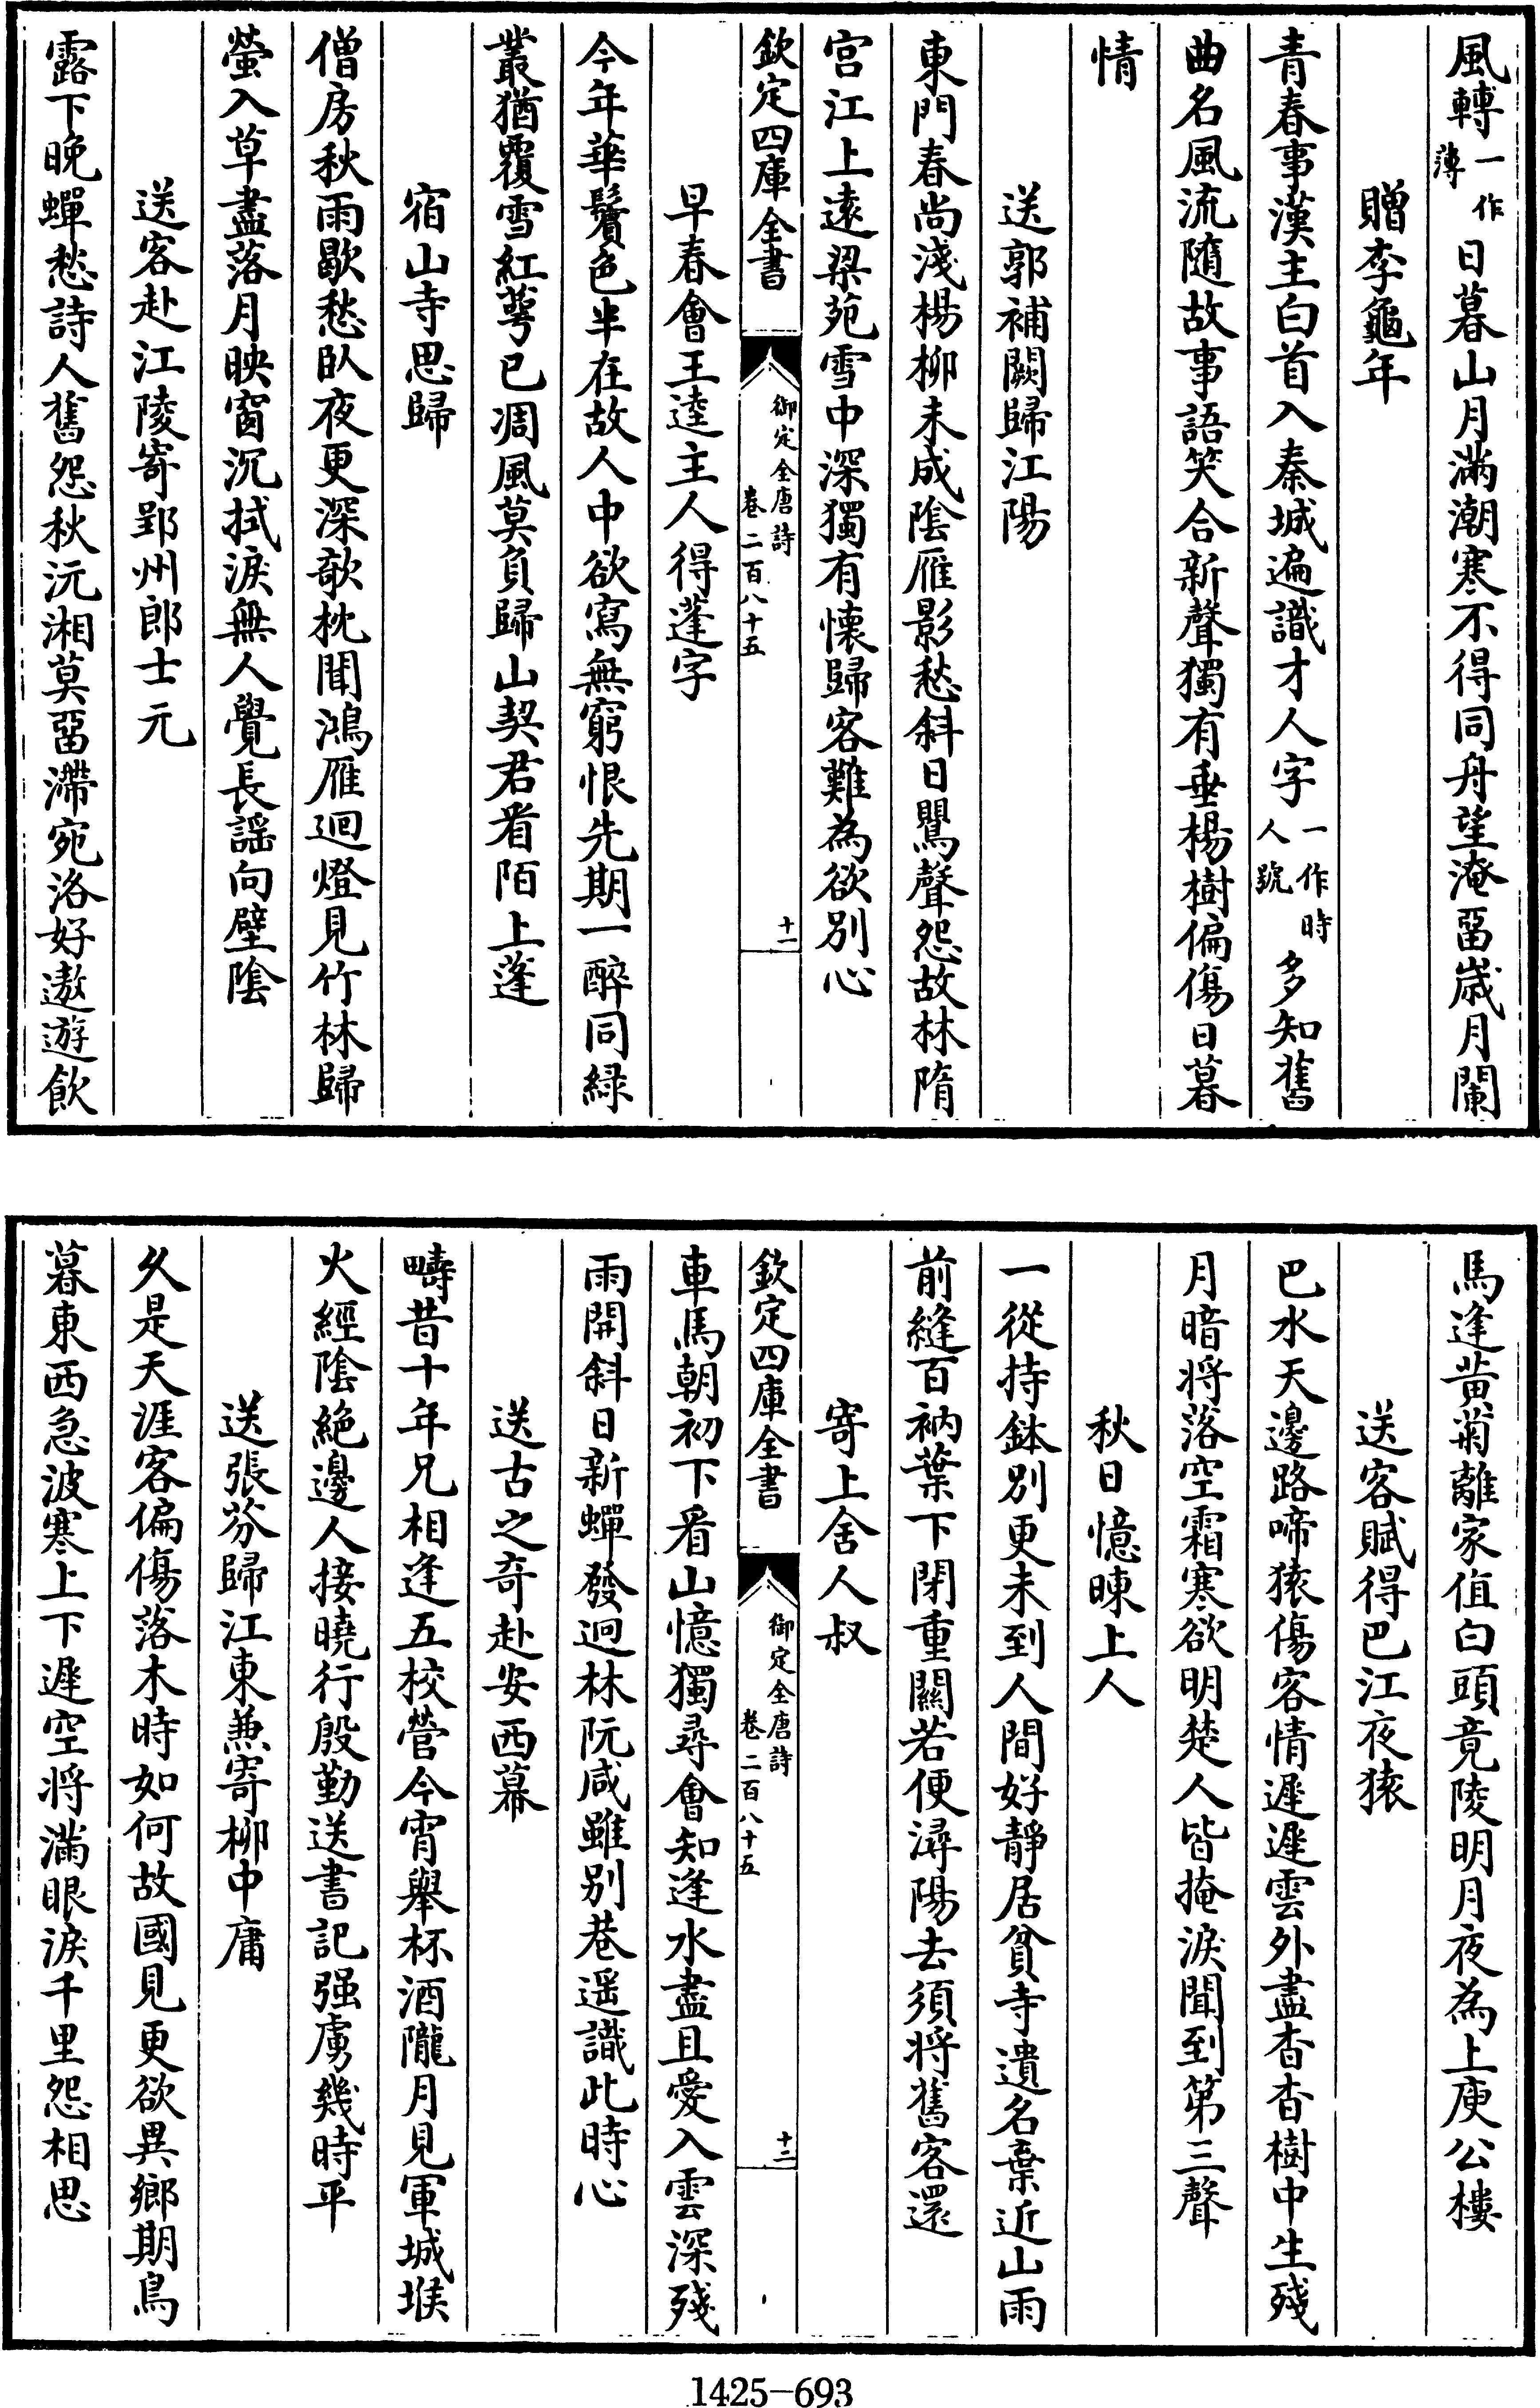 風轉一作薄日暮山月滿潮寒不得同舟望淹畱歲月闌
贈李龜年
青春事漢主白首入秦城遍識才人字一作時人號多知舊
曲名風流隨故事語笑合新聲獨有垂楊樹偏傷日暮
情
送郭補闕歸江陽
東門春尚淺楊柳未成陰雁影愁斜日鸎聲怨故林隋
宮江上遠梁苑雪中深獨有懷歸客難為欲别心
欽定四庫全書
御定全唐詩
卷二百八十五
十一
早春會王逵主人得蓬字
今年華鬢色半在故人中欲寫無窮恨先期一醉同緑
叢猶覆雪紅萼已凋風莫負歸山契君看陌上蓬
宿山寺思歸
僧房秋雨歇愁臥夜更深欹枕聞鴻雁迴燈見竹林歸
螢入草盡落月映窗沉拭淚無人覺長謡向壁陰
送客赴江陵寄郢州郎士元
露下晚蟬愁詩人舊怨秋沅湘莫畱滯宛洛好遨遊飲
馬逢黃菊離家值白頭竟陵明月夜為上庾公樓
送客賦得巴江夜猿
巴水天邊路啼猿傷客情遲遲雲外盡杳杳樹中生殘
月暗将落空霜寒欲明楚人皆掩淚聞到第三聲
秋日憶暕上人
一從持鉢别更未到人間好靜居貧寺遺名棄近山雨
前縫百衲葉下閉重關若便潯陽去須將舊客還
寄上舍人叔
欽定四庫全書
御定全唐詩
卷二百八十五
十二
車馬朝初下看山憶獨尋會知逢水盡且愛入雲深殘
雨開斜日新蟬發迥林阮咸雖别巷遥識此時心
送古之奇赴安西幕
疇昔十年兄相逢五校營今宵舉杯酒隴月見軍城堠
火經陰絶邊人接曉行殷勤送書記强虜幾時平
送張芬歸江東兼寄栁中庸
久是天涯客偏傷落木時如何故國見更欲異鄉期鳥
暮東西急波寒上下遲空将滿眼淚千里怨相思
1425—693